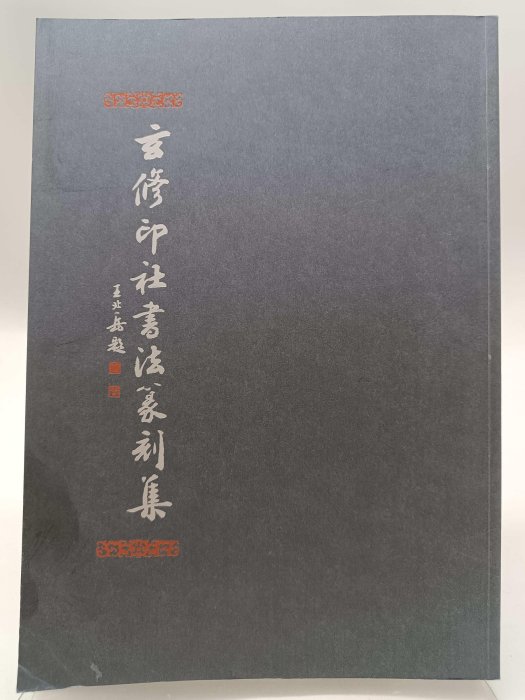 玄修印社書法篆刻集
王北岳題